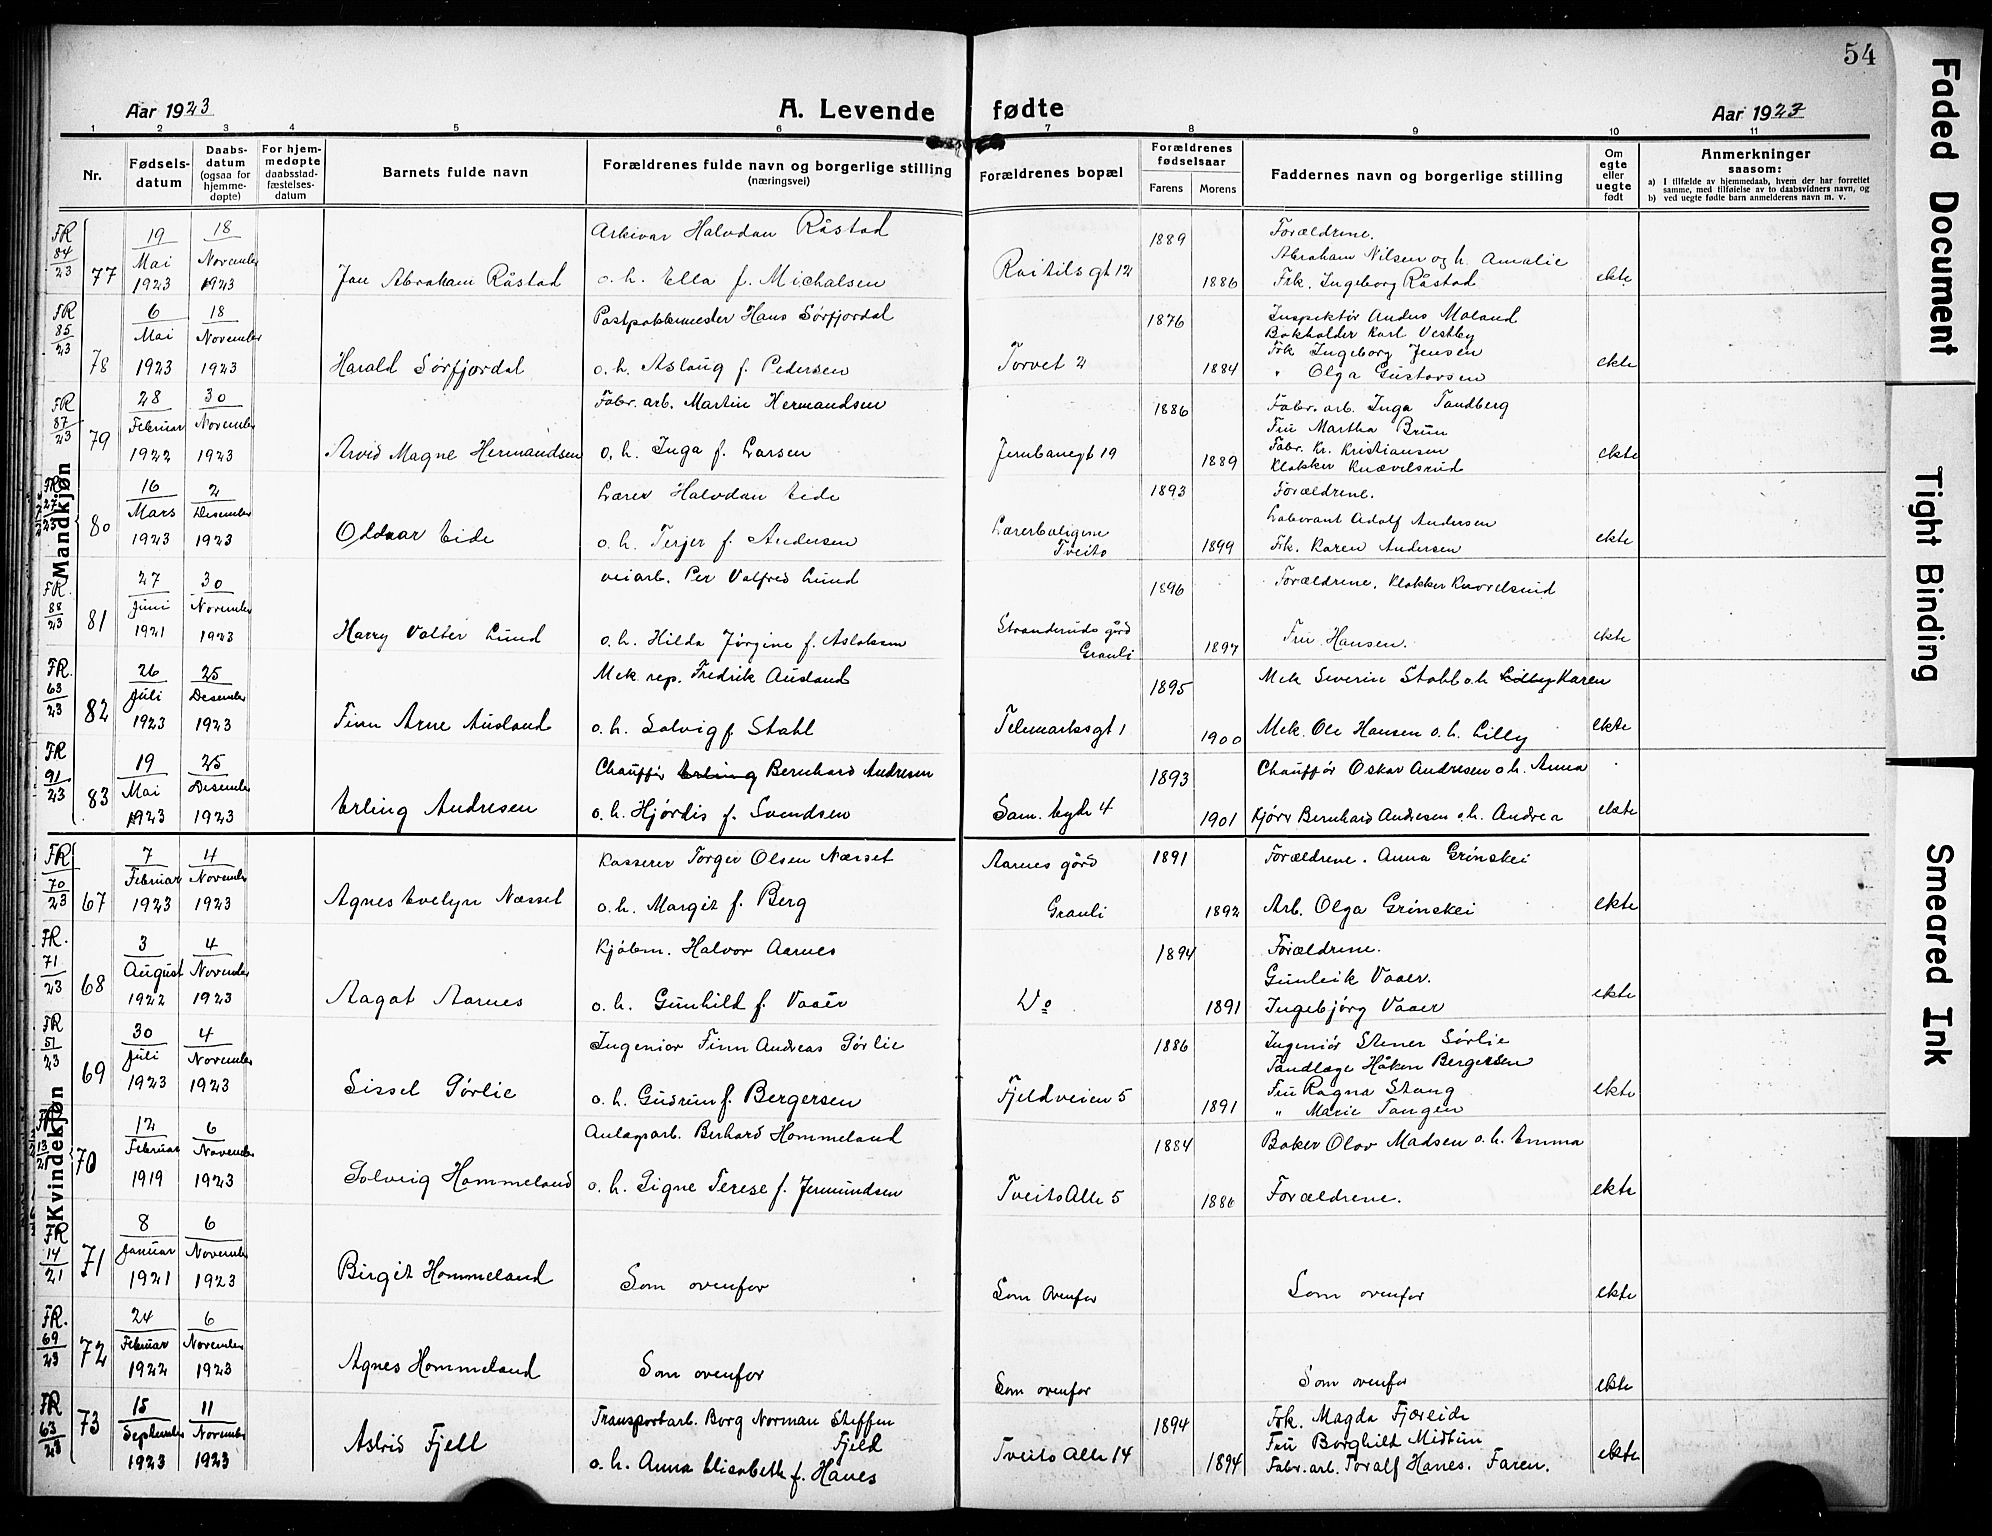 54
Aar 1923
A. Levende fødte
Aar 1923
1 2 3 4 5 6 7 8 9 10 11
Nr.
Fødsels-
datum
Daabs-
datum
(ogsaa for
hjemme-
døpte)
For hjem-
medøpte
daabsstad-
fæstelses-
datum
Barnets fulde navn
Forældrenes fulde navn og borgerlige stilling
(næringsvei)
Forældrenes bopæl
Forældrenes
fødselsaar
Farens Morens
Faddernes navn og borgerlige stilling
Om
egte
eller
uegte
født
Anmerkninger
saasom:
a) I tilfælde av hjemmedaab, hvem der har forrettet
samme, med tilføielse av to daabsvidners navn, og
b) ved uegte fødte barn anmelderens navn m. v.
Mandkjøn
FR 84/23
77
19 Mai 1923
18 November 1923
Jan Abraham Råstad
Arkivar Halvdan Råstad
o. h. Ella f. Michalsen
1889
1886
Forældrene.
Abraham Nilsen og h. Amalie
Frk. Ingeborg Råstad
ekte
FR 85/23
78
6 Mai 1923
18 November 1923
Harald Sørfjordal
Postpakkmester Hans Sørfjordal
o. h. Aslaug f. Pedersen
Torvet 2
1876
1884
Inspektør Anders Moland
Bokholder Karl Vestby
Frk Ingeborg Jensen
" Olga Gustavsen
ekte
FR 87/23
79
28 Februar 1922
30 November 1923
Arvid Magne Hermandsen
Fabr. arb. Martin Hermandsen
o. h. Inga f. Larsen
Jernbanegt 19
1886
1889
Fabr. arb. Inga Tandberg
Fru Martha Brun
Fabr. Kr. Kristiansen
Klokker Knævelsrud
ekte
FR
80
16 Mars 1923
2 Desember 1923
Oddvar Eide
Lærer Halvdan Eide
o. h. Terjer f. Andersen
Lærerboligene
Tveito
1893
1899
Forældrene.
Laborant Adolf Andersen
Frk. Karen Andersen
ekte
FR. 88/23
81
27 Juni 1921
30 November 1923
Harry Valter Lund
veiarb. Per Valfred Lund
o. h. Hilda Jørgine f. Aslaksen
Stranderuds gård
Grauli
1896
1897
Forældrene. Klokker Knævelsrud
Fru Hansen.
ekte
FR. 63/23
82
26 Juli 1923
25 Desember 1923
Finn Arne Ausland
Mek rep. Fredrik Ausland
o. h. Solvig f. Stahl
Telemarksgt 1
1895
1900
Mek Severin Stahl o. h. Karen
Mek. Ole Hansen o. h. Lilly
ekte
FR 91/23
83
19 Mai 1923
25 Desember 1923
Erling Andresen
Chauffør Erling Bernhard Andresen
o. h. Hjørdis f. Svendsen
Sam. bygde 4
1893
1901
Chauffør Oskar Andresen o. h. Anna
Kjørs Bernhard Andresen o. h. Andrea
ekte
Kvindekjøn
FR 70/23
67
7 Februar 1923
4 November 1923
Agnes Evelyn Næsset
Kasserer Torger Olsen Næsset
o. h. Margit f. Berg
Aarnes gård
Grauli
1891
1892
Forældrene. Anna Grinskei
Arb. Olga Grinskei
ekte
FR. 71/23
68
3 August 1922
4 November 1923
Aagat Aarnes
Kjøbm. Halvor Aarnes
o. h. Gunhild f. Vaaer
Do
1894
1891
Forældrene.
Gunleik Vaaer.
Ingebjørg Vaaer
ekte
FR 51/23
69
30 Juli 1923
4 November 1923
Sissel Sørlie
Ingeniør Finn Andreas Sørlie
o. h. Gudrun f. Bergersen
Fjeldveien 5
1886
1891
Ingeniør Stener Sørlie
Tandlæge Håken Bergersen
Fru Ragna Stang
" Marie Tangen
ekte
FR 13/21
70
12 Februar 1919
6 November 1923
Solveig Hommeland
Anlægsarb. Berhard Hommeland
o. h. Signe Terese f. Jermundsen
Tveito Alle 5
1884
1886
Baker Olav Madsen o. h. Emma
Forældrene.
ekte
FR 14/21
71
8 Januar 1921
6 November 1923
Birgit Hommeland
Som ovenfor
Som ovenfor
Som ovenfor
ekte
FR. 69/23
72
24 Februar 1922
6 November 1923
Agnes Hommeland
Som ovenfor
Som ovenfor
Som ovenfor
ekte
FR 63/23
73
15 September 1923
11 November 1923
Astrid Fjell
Transportarb. Borg Norman Steffen
Fjeld
o. h. Anna Elisabeth f. Hanes
Tveito Alle 14
1894
1894
Frk. Magda Fjæreide
Fru Borghild Midtun
Fabr. arb. Toralf Hanes. Faren.
ekte
Faded Document
Tight Binding
Smeared Ink